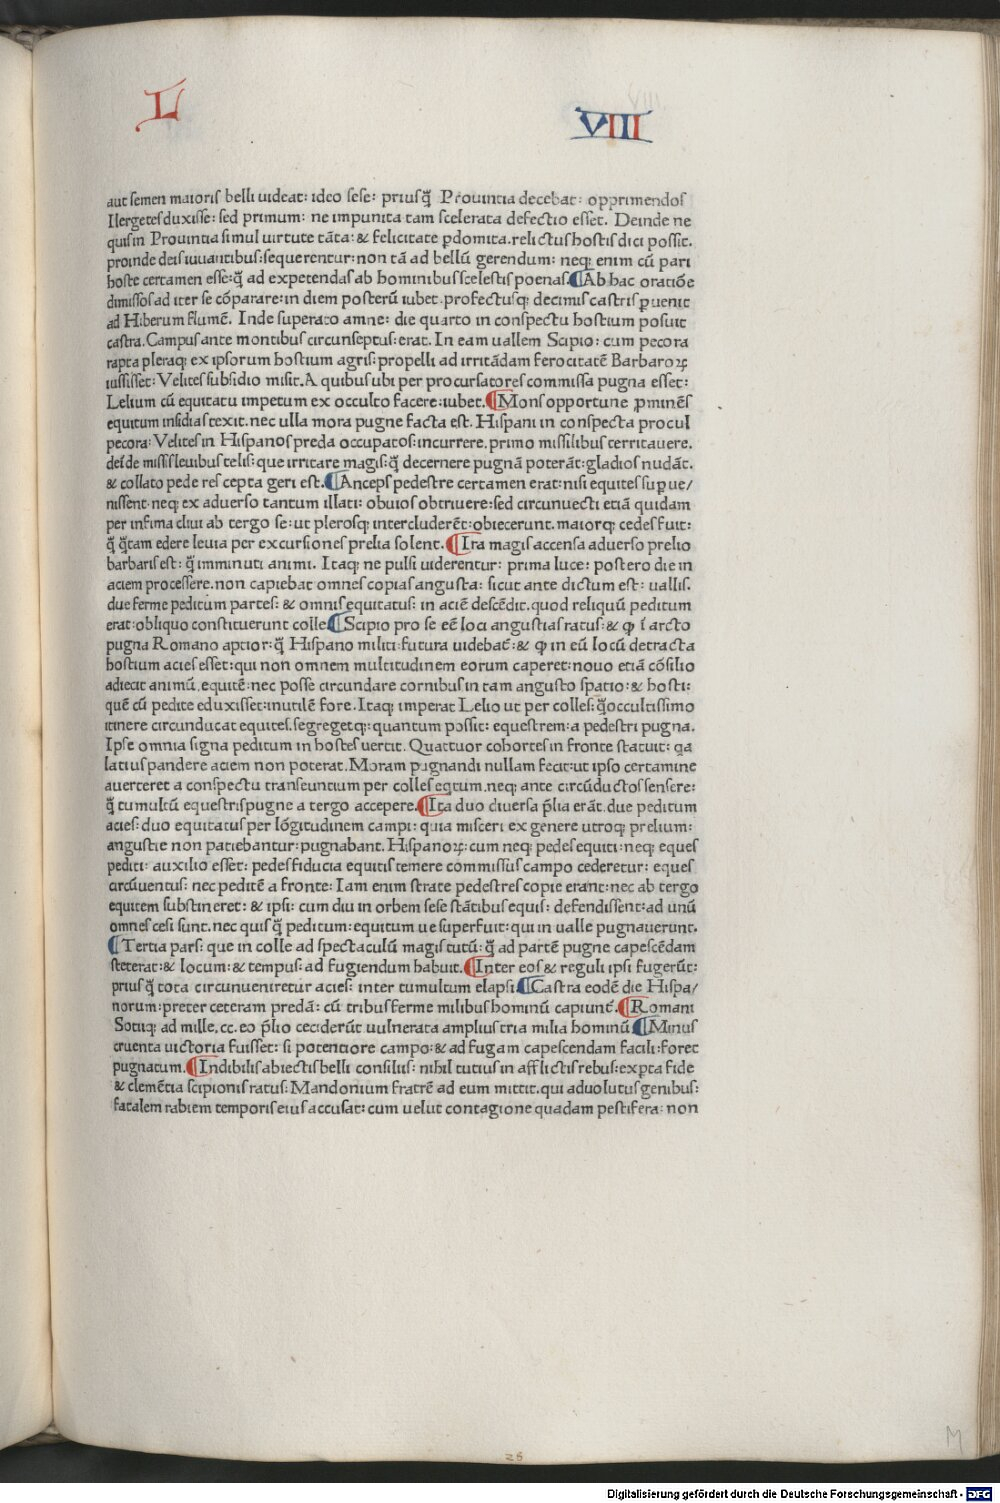 L VIII
aut semen maioris belli uideat: ideo sese: priusq̃ Prouintia decebat: opprimendos
Ilergetes duxisse: sed primum: ne impunita tam scelerata defectio esset. Deinde ne
quis in Prouintia simul uirtute tãta: & felicitate ꝑdomita. relictus hostis dici possit.
proinde deis iuuantibus: sequerentur: non tã ad bellũ gerendum: neqꝫ enim cũ pari
hoste certamen esse: q̃ ad expetendas ab hominibus scelestis poenas. ¶Ab hac oratiõe
dimissos ad iter se cõparare: in diem posterũ iubet. profectusqꝫ decimis castris ꝑuenit
ad Hiberum flumẽ. Inde superato amne: die quarto in conspectu hostium posuit
castra. Campus ante montibus circunseptus: erat. In eam uallem Scipio: cum pecora
rapta pleraqꝫ ex ipsorum hostium agris: propelli ad irritãdam ferocitatẽ Barbaroꝝ
iussisset: Velites subsidio misit. A quibus ubi per procursatores commissa pugna esset:
Lelium cũ equitatu impetum ex occulto facere: iubet. ¶Mons opportune ꝓminẽs
equitum insidias texit. nec ulla mora pugne facta est. Hispani in conspecta procul
pecora: Velites in Hispanos preda occupatos: incurrere. primo missilibus territauere.
deĩde missis leuibus telis: que irritare magis: q̃ decernere pugnã poterãt: gladios nudãt.
& collato pede res cepta geri est. ¶Anceps pedestre certamen erat: nisi equites suꝑue/
nissent. neqꝫ ex aduerso tantum illati: obuios obtriuere: sed circunuecti etiã quidam
per infima cliui ab tergo se: ut plerosqꝫ intercluderẽt: obiecerunt. maiorqꝫ cedes fuit:
q̃ q̃tam edere leuia per excursiones prelia solent. ¶Ira magis accensa aduerso prelio
barbaris est: q̃ imminuti animi. Itaqꝫ ne pulsi uiderentur: prima luce: postero die in
aciem processere. non capiebat omnes copias angusta: sicut ante dictum est: uallis.
due ferme peditum partes: & omnis equitatus: in aciẽ descẽdit. quod reliquũ peditum
erat: obliquo constituerunt colle ¶Scipio pro se eẽ loci angustias ratus: & ꝙ ĩ arcto
pugna Romano aptior: q̃ Hispano militi: futura uidebat̃: & ꝙ in eũ locũ detracta
hostium acies esset: qui non omnem multitudinem eorum caperet: nouo etiã cõsilio
adiecit animũ. equitẽ: nec posse circundare cornibus in tam angusto spatio: & hosti:
quẽ cũ pedite eduxisset: inutilẽ fore. Itaqꝫ imperat Lelio ut per colles: q̃ occultissimo
itinere circunducat equites. segregetqꝫ: quantum possit: equestrem: a pedestri pugna.
Ipse omnia signa peditum in hostes uertit. Quattuor cohortes in fronte statuit: qa
latius pandere aciem non poterat. Moram pugnandi nullam fecit: ut ipso certamine
auerteret a conspectu transeuntium per colles eqtum. neqꝫ ante circũductos sensere:
q̃ tumultũ equestris pugne a tergo accepere. ¶Ita duo diuersa ꝑlia erãt. due peditum
acies: duo equitatus per lõgitudinem campi: quia misceri ex genere utroqꝫ prelium:
angustie non patiebantur: pugnabant. Hispanoꝝ: cum neqꝫ pedes equiti: neqꝫ eques
pediti: auxilio esset: pedes fiducia equitis temere commissus campo cederetur: eques
circũuentus: nec peditẽ a fronte: Iam enim strate pedestres copie erant: nec ab tergo
equitem substineret: & ipsi: cum diu in orbem sese stãtibus equis: defendissent: ad unũ
omnes cesi sunt. nec quisq̃ peditum: equitum ue superfuit: qui in ualle pugnauerunt.
¶Tertia pars: que in colle ad spectaculũ magis tutũ: q̃ ad partẽ pugne capescẽdam
steterat: & locum: & tempus: ad fugiendum habuit. ¶Inter eos & reguli ipsi fugerũt:
prius q̃ tota circunueniretur acies: inter tumultum elapsi ¶Castra eodẽ die Hispa/
norum: preter ceteram predã: cũ tribus ferme milibus hominũ capiunt̃. ¶Romani
Sotiiqꝫ ad mille. cc. eo ꝑlio ceciderũt uulnerata amplius tria milia hominũ ¶Minus
cruenta uictoria fuisset: si potentiore campo: & ad fugam capescendam facili: foret
pugnatum. ¶Indibilis abiectis belli consiliis: nihil tutius in afflictis rebus: exꝑta fide
& clemẽtia scipionis ratus: Mandonium fratrẽ ad eum mittit. qui aduolutus genibus:
fatalem rabiem temporis eius accusat: cum uelut contagione quadam pestifera: non
25
M
Digitalisierung gefördert durch die Deutsche Forschungsgemeinschaft - DFG